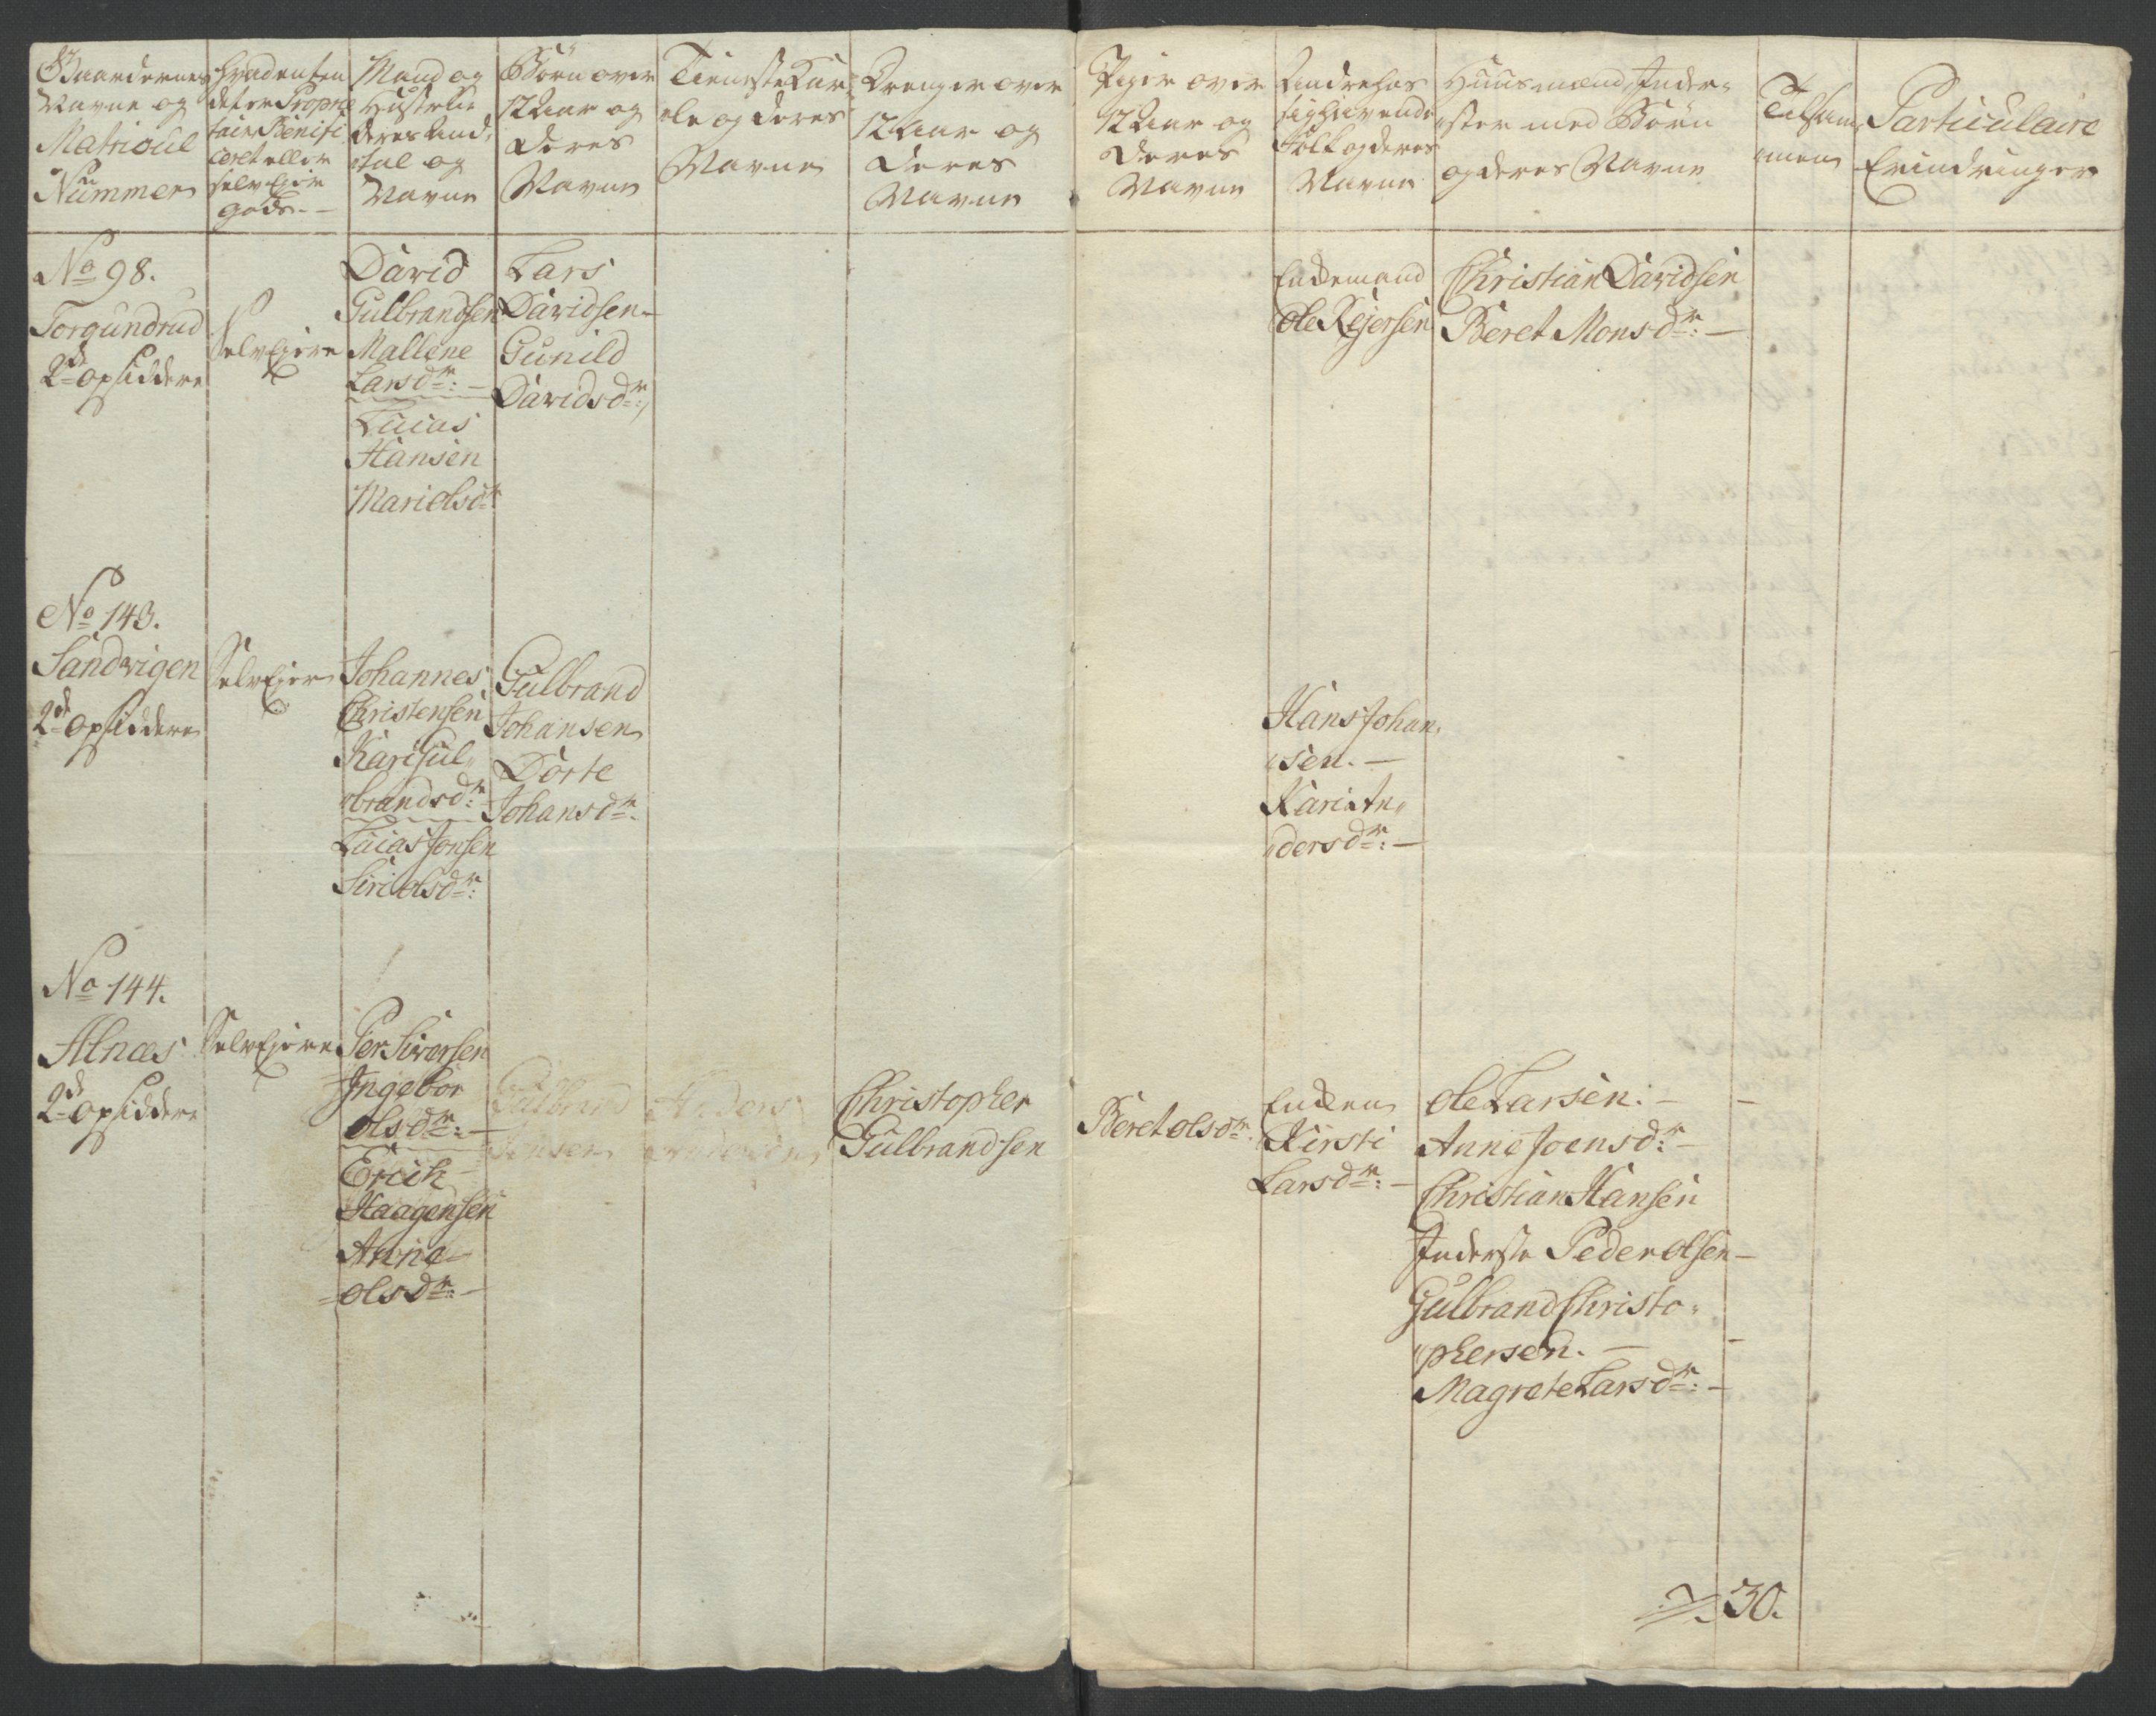 Gaardernes
Navne og
Matricul
Nummer
Hvad enten
det er Proprie
tair Benifi
ceret eller
selv Ejer
gods. —
Mand og
Hustrue
deres And„
„tal og
Navne
Börn over
12 Aar og
Deres
Navne
Tieneste Kar„
„le og deres
Navne
Drenger over
12 Aar og
Deres
Navne
Piger over
12 Aar og
Deres
Navne
Andre hos
sig havende
Folk og deres
Navne
Huusmænd, Inder„
„ster med Börn
og deres Navne
Tilsam„
„men
Particulaire
Erindringer
No 98.
Torgundrud
2de Opsiddere
Selv Ejere
David
Gulbrandsen
Mallene
Larsdr: —
Lucas
Hansen
Mari Olsdr
Lars
Davidsen —
Gunild
Davidsdr:
Enckemand
Ole Rejersen
Christian Davidsen
Beret Monsdr: —
No 143.
Sandvigen
2de Opsiddere
Selv Ejere
Johannes
Christensen
Kari Gul„
„brandsdr:
Lucas Jonsen
Siri Olsdr:
Gulbrand
Johansen
Dorte
Johansdr.
Hans Johan„
„sen. —
Kari An„
„dersdr: —
No 144.
Alnæs
2de Opsiddere
Selv Ejere
Per Siversen
Ingebor
Olsdr: —
Erich
Haagensen
Anne —
Olsdr: —
Gulbrand
Jensen
Anders
Andersen
Christopher
Gulbrandsen
Beret Olsdr.
Encken
Kirsti
Larsdr: —
Ole Larsen: —
Anne Joensdr: —
Christian Hansen
Inderste Peder Olsen —
Gulbrand Christo„
„phersen. —
Magrete Larsdr: —
30.